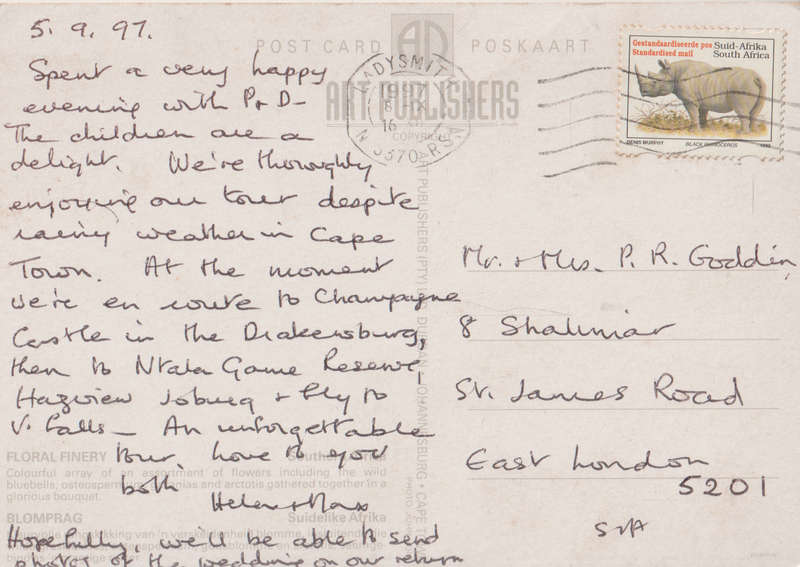 5.9.97.
Spent a very happy
evening with P & D -
The children are a
delight. We're thoroughly
enjoying our tour despite
rainy weather in Cape
Town. At the moment
we're en route to Champagne
Castle in the Drakensburg,
then to Ntala Game Reserve,
Hazview Joburg & fly to
V. Falls - An unforgettable
tour, love to you
both
Helen & Max
Hopefully, we'll be able to send
photos of the wedding on our return
POST CARD AD POSKAART
ART PUBLISHERS
COPYRIGHT
LADYSMITH
1997
8 IX
16
N 3370 RSA
Gestandaardiseerde pos
Standardised mail
Suid-Afrika
South Africa
DENIS MURPHY BLACK RHINOCEROS 1993
Mr. & Mrs. P. R. Goddin,
8 Shalimar
St. James Road
East London
5201
S.A
ART PUBLISHERS (PTY) DURBAN • JOHANNESBURG • CAPE
FLORAL FINERY Southern Africa
Colourful array of an assortment of flowers including the wild
bluebells, osteospermum, and arctotis gathered together in a
glorious bouquet.
BLOMPRAG Suidelike Afrika